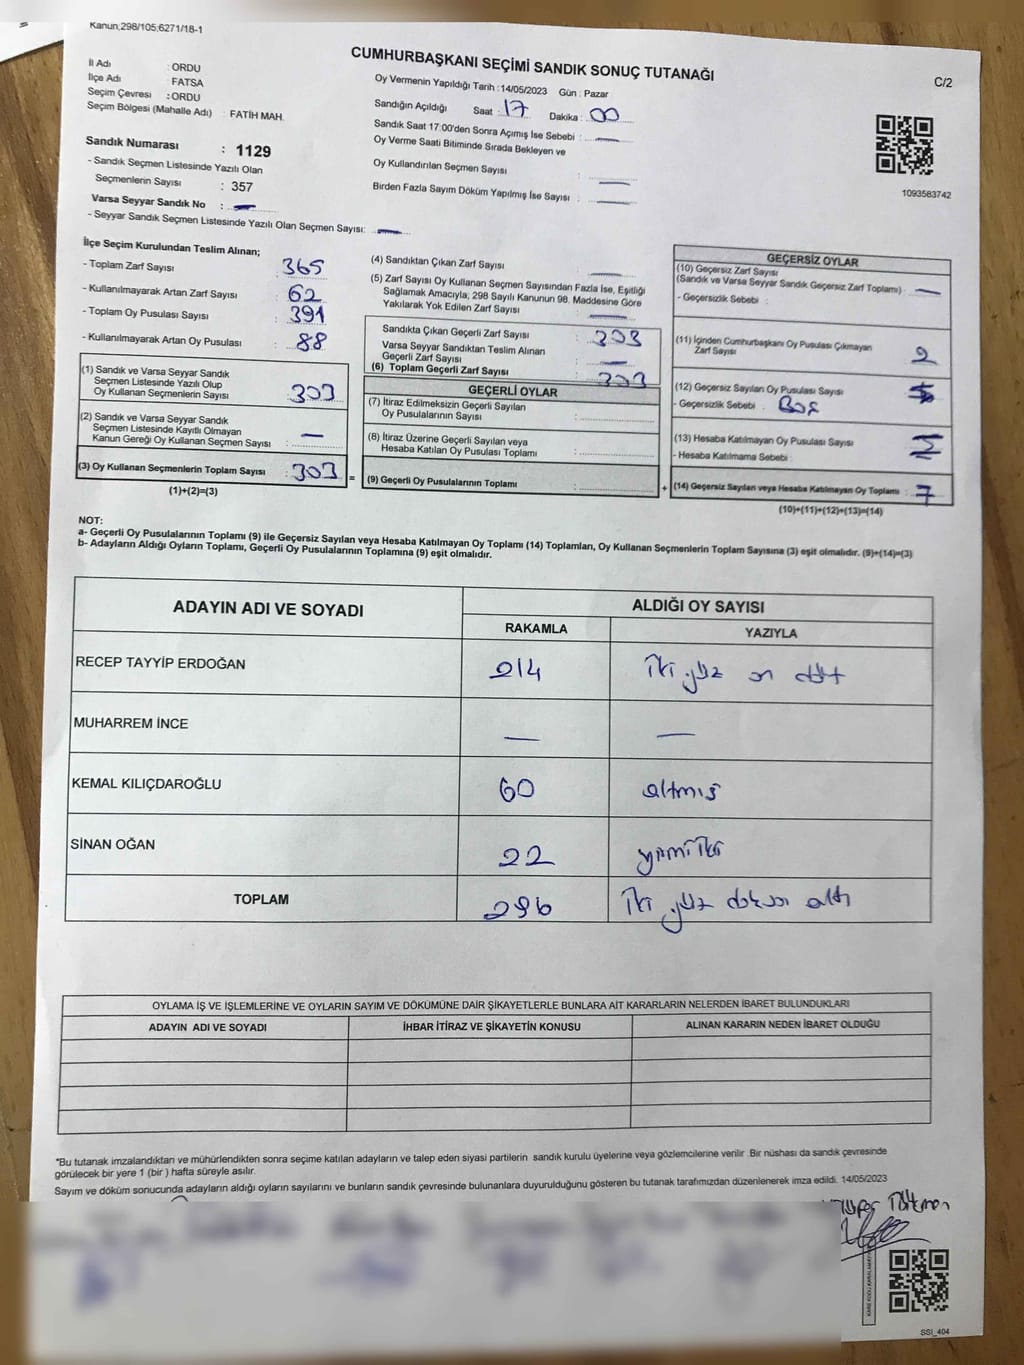 Kanun;298/105;6271/18-1
CUMHURBAŞKANI SEÇİMİ SANDIK SONUÇ TUTANAĞI
C/2
İl Adı : ORDU
İlçe Adı : FATSA
Seçim Çevresi : ORDU
Seçim Bölgesi (Mahalle Adı) : FATİH MAH.
Sandık Numarası : 1129
- Sandık Seçmen Listesinde Yazılı Olan
Seçmenlerin Sayısı : 357
Varsa Seyyar Sandık No : —
- Seyyar Sandık Seçmen Listesinde Yazılı Olan Seçmen Sayısı: —
Oy Vermenin Yapıldığı Tarih : 14/05/2023 Gün : Pazar
Sandığın Açıldığı Saat : 17 Dakika : 00
Sandık Saat 17:00'den Sonra Açımış İse Sebebi : —
Oy Verme Saati Bitiminde Sırada Bekleyen ve
Oy Kullandırılan Seçmen Sayısı : —
Birden Fazla Sayım Döküm Yapılmış İse Sayısı : —
1093583742
İlçe Seçim Kurulundan Teslim Alınan;
- Toplam Zarf Sayısı : 365
- Kullanılmayarak Artan Zarf Sayısı : 62
- Toplam Oy Pusulası Sayısı : 391
- Kullanılmayarak Artan Oy Pusulası : 88
(1) Sandık ve Varsa Seyyar Sandık
Seçmen Listesinde Yazılı Olup
Oy Kullanan Seçmenlerin Sayısı : 303
(2) Sandık ve Varsa Seyyar Sandık
Seçmen Listesinde Kayıtlı Olmayan
Kanun Gereği Oy Kullanan Seçmen Sayısı : —
(3) Oy Kullanan Seçmenlerin Toplam Sayısı : 303 =
(1)+(2)=(3)
(4) Sandıktan Çıkan Zarf Sayısı : —
(5) Zarf Sayısı Oy Kullanan Seçmen Sayısından Fazla İse, Eşitliği
Sağlamak Amacıyla, 298 Sayılı Kanunun 98. Maddesine Göre
Yakılarak Yok Edilen Zarf Sayısı : —
Sandıkta Çıkan Geçerli Zarf Sayısı : 303
Varsa Seyyar Sandıktan Teslim Alınan
Geçerli Zarf Sayısı : —
(6) Toplam Geçerli Zarf Sayısı : 303
GEÇERLİ OYLAR
(7) İtiraz Edilmeksizin Geçerli Sayılan
Oy Pusulalarının Sayısı :
(8) İtiraz Üzerine Geçerli Sayılan veya
Hesaba Katılan Oy Pusulası Toplamı :
(9) Geçerli Oy Pusulalarının Toplamı : +
GEÇERSİZ OYLAR
(10) Geçersiz Zarf Sayısı
(Sandık ve Varsa Seyyar Sandık Geçersiz Zarf Toplamı) : —
- Geçersizlik Sebebi :
(11) İçinden Cumhurbaşkanı Oy Pusulası Çıkmayan
Zarf Sayısı : 2
(12) Geçersiz Sayılan Oy Pusulası Sayısı :
- Geçersizlik Sebebi : Boş
(13) Hesaba Katılmayan Oy Pusulası Sayısı :
- Hesaba Katılmama Sebebi :
(14) Geçersiz Sayılan veya Hesaba Katılmayan Oy Toplamı : 7
(10)+(11)+(12)+(13)=(14)
NOT:
a- Geçerli Oy Pusulalarının Toplamı (9) ile Geçersiz Sayılan veya Hesaba Katılmayan Oy Toplamı (14) Toplamları, Oy Kullanan Seçmenlerin Toplam Sayısına (3) eşit olmalıdır. (9)+(14)=(3)
b- Adayların Aldığı Oyların Toplamı, Geçerli Oy Pusulalarının Toplamına (9) eşit olmalıdır.
ADAYIN ADI VE SOYADI ALDIĞI OY SAYISI
RAKAMLA YAZIYLA
RECEP TAYYİP ERDOĞAN 214 iki yüz on dört
MUHARREM İNCE — —
KEMAL KILIÇDAROĞLU 60 altmış
SİNAN OĞAN 22 yirmi iki
TOPLAM 296 iki yüz doksan altı
OYLAMA İŞ VE İŞLEMLERİNE VE OYLARIN SAYIM VE DÖKÜMÜNE DAİR ŞİKAYETLERLE BUNLARA AİT KARARLARIN NELERDEN İBARET BULUNDUKLARI
ADAYIN ADI VE SOYADI İHBAR İTİRAZ VE ŞİKAYETİN KONUSU ALINAN KARARIN NEDEN İBARET OLDUĞU
*Bu tutanak imzalandıktan ve mühürlendikten sonra seçime katılan adayların ve talep eden siyasi partilerin sandık kurulu üyelerine veya gözlemcilerine verilir .Bir nüshası da sandık çevresinde
görülecek bir yere 1 (bir ) hafta süreyle asılır.
Sayım ve döküm sonucunda adayların aldığı oyların sayılarını ve bunların sandık çevresinde bulunanlara duyurulduğunu gösteren bu tutanak tarafımızdan düzenlenerek imza edildi. 14/05/2023
SSI_404